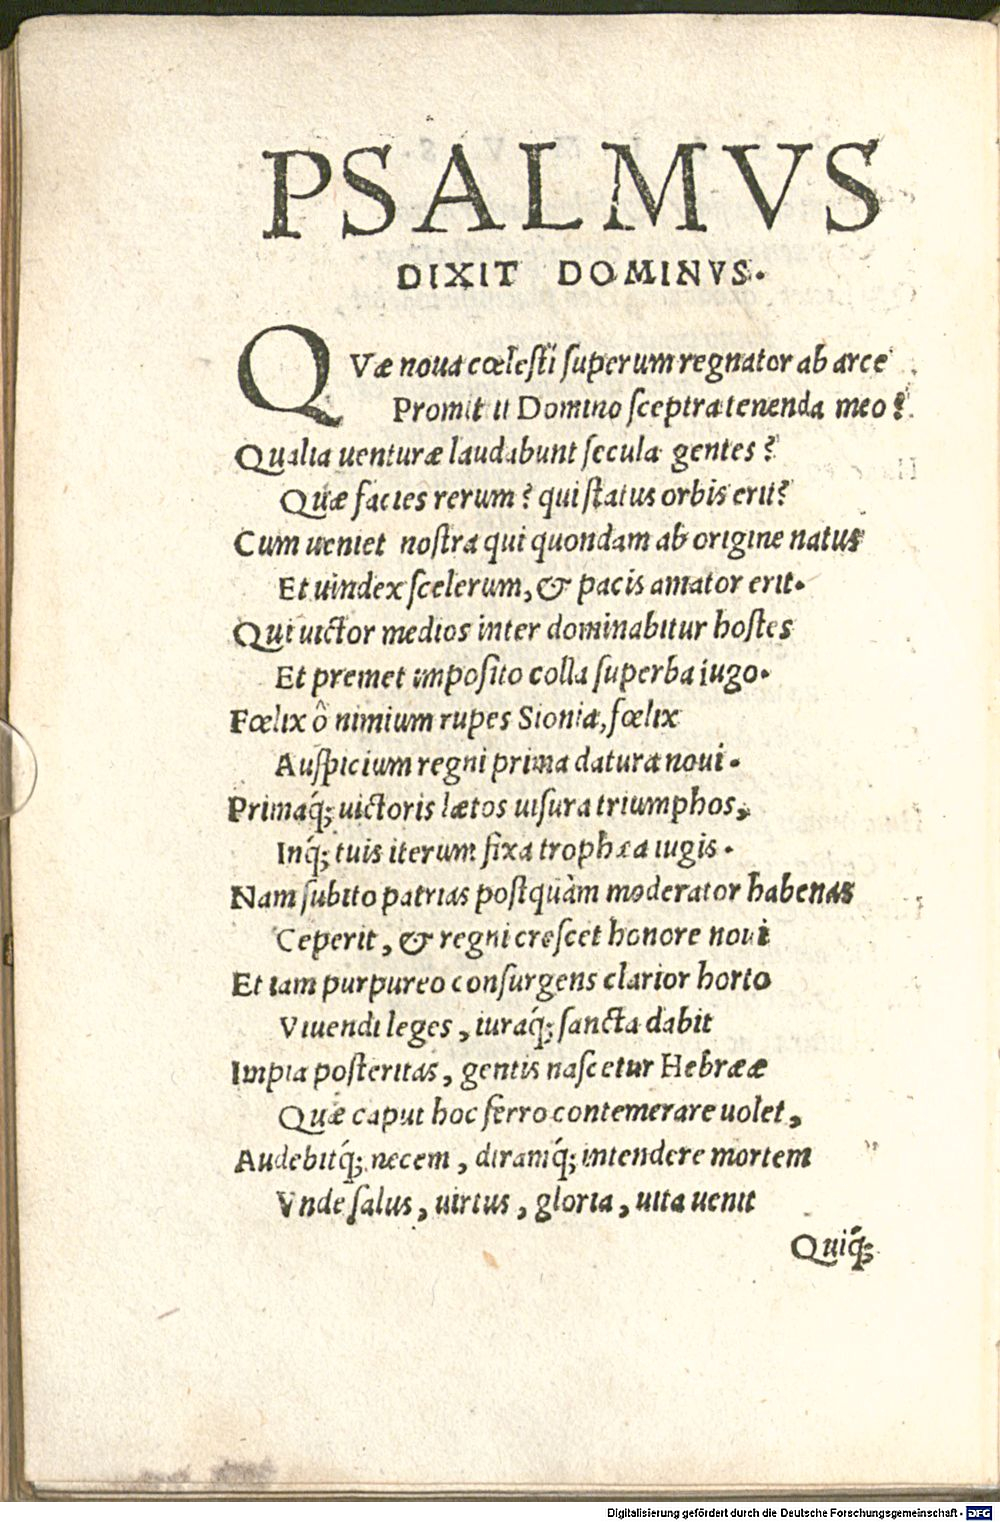 PSALMVS
DIXIT DOMINVS.
QVæ noua cœlesti superum regnator ab arce
Promit ii Domino sceptra tenenda meo?
Qualia uenturæ laudabunt secula gentes?
Quæ facies rerum? qui status orbis erit?
Cum ueniet nostra qui quondam ab origine natus
Et uindex scelerum, & pacis amator erit.
Qui uictor medios inter dominabitur hostes
Et premet imposito colla superba iugo.
Fœlix ô nimium rupes Sionia, fœlix
Auspicium regni prima datura noui.
Primaq́; uictoris lætos uisura triumphos,
Inq́; tuis iterum fixa trophæa iugis.
Nam subito patrias postquàm moderator habenas
Ceperit, & regni crescet honore noui
Et iam purpureo consurgens clarior horto
Viuendi leges, iuraq́; sancta dabit
Impia posteritas, gentis nascetur Hebrææ
Quæ caput hoc ferro contemerare uolet,
Audebitq́; necem, diramq́; intendere mortem
Vnde salus, uirtus, gloria, uita uenit
Quiq́;
Digitalisierung gefördert durch die Deutsche Forschungsgemeinschaft - DFG